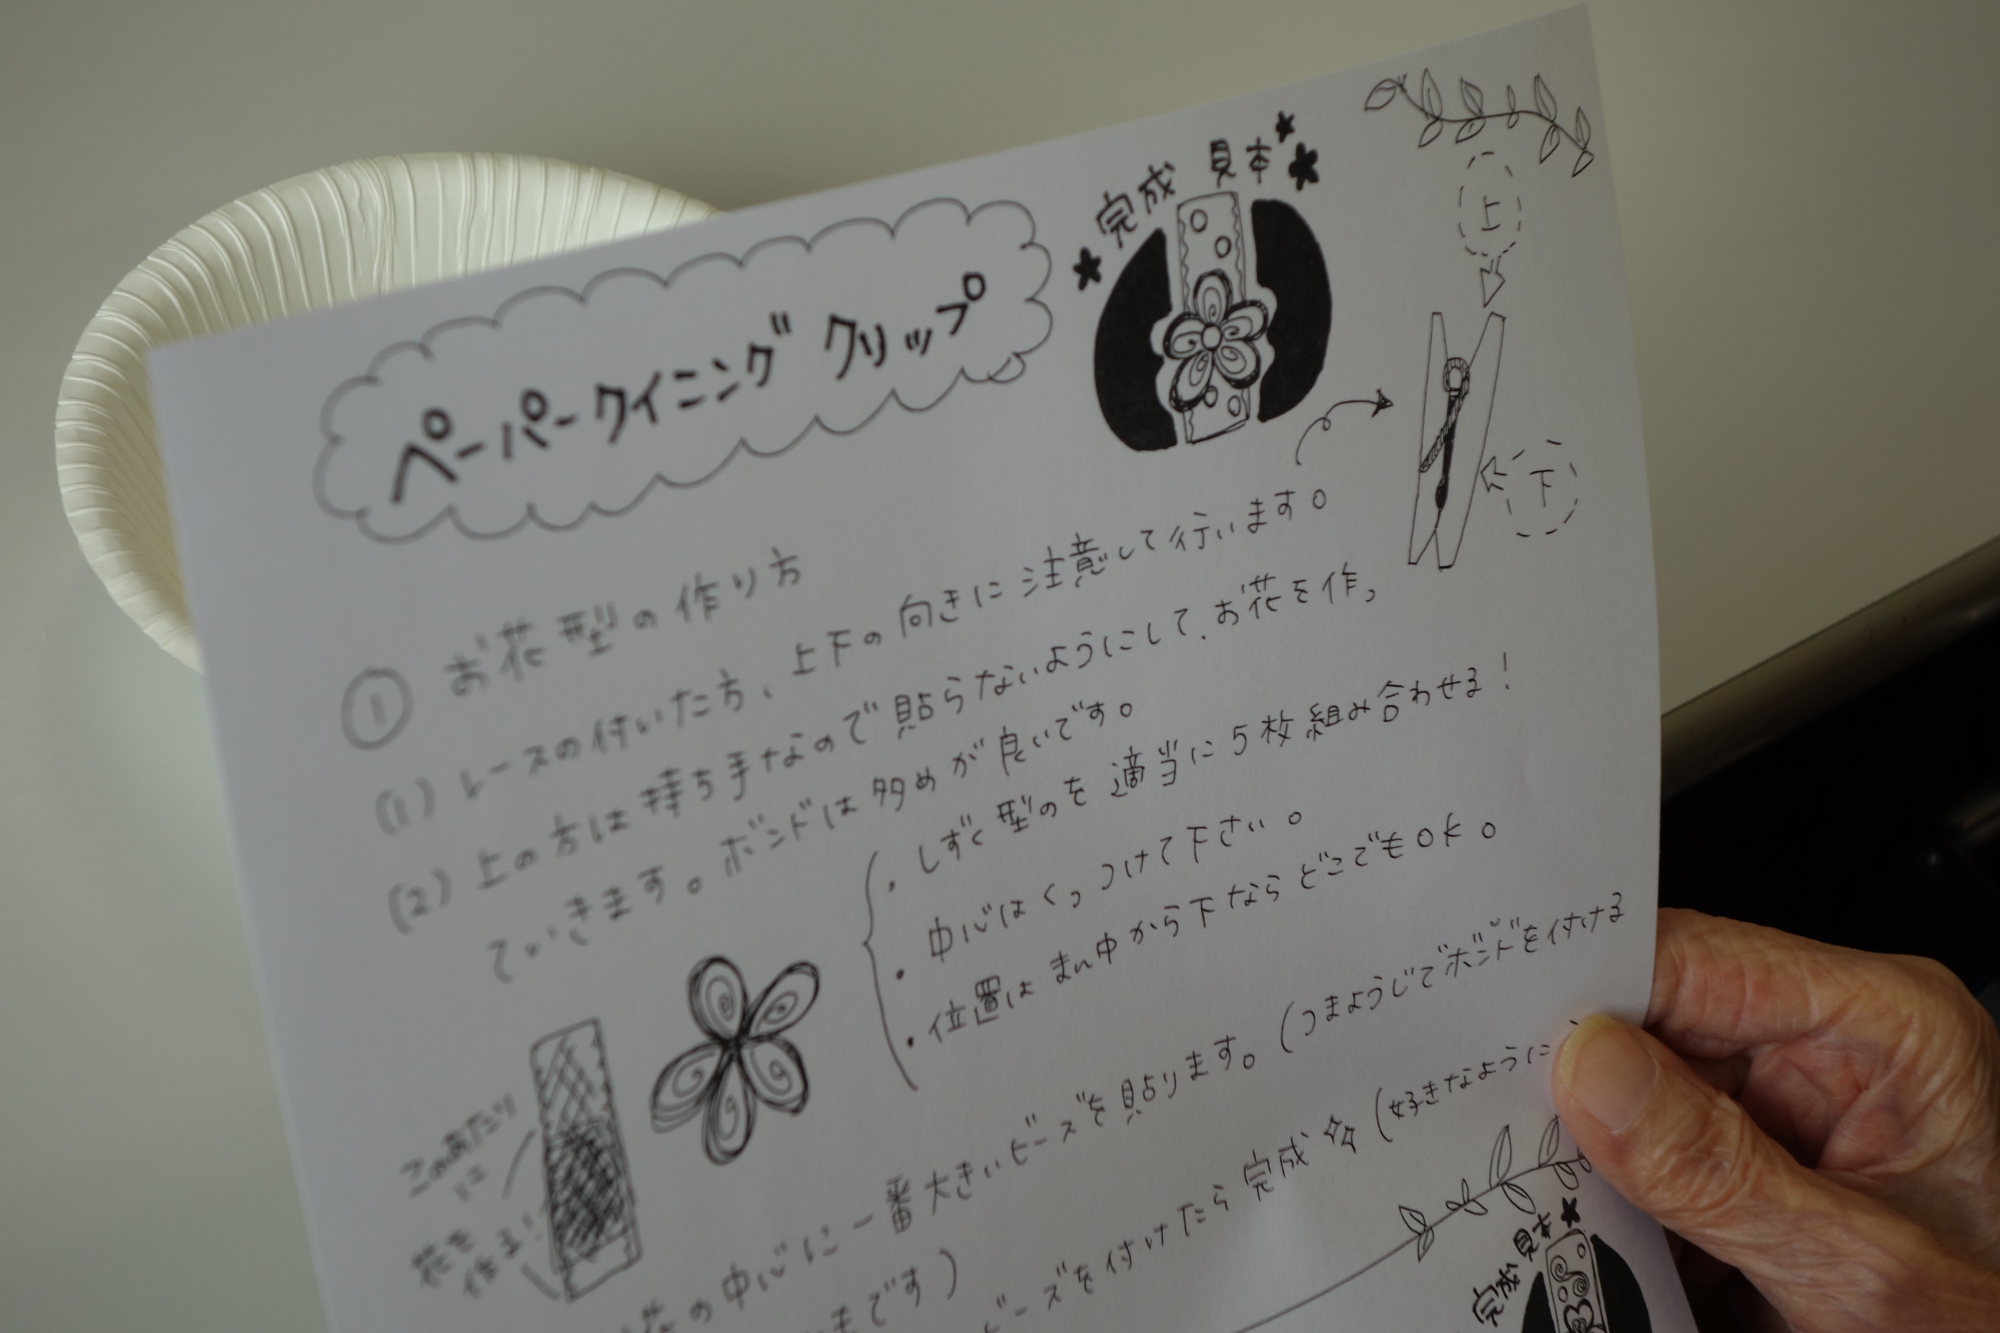 ペーパークイニングクリップ
完成 見本
上
下
① お花型の作り方
(1) レースの付いた方、上下の向きに注意して行います。
(2) 上の方は持ち手なので貼らないようにして、お花を作っ
ていきます。ボンドは多めが良いです。
・しずく型のを適当に5枚組み合わせる!
・中心はくっつけて下さい。
・位置はまん中から下ならどこでもOK。
このあたり
に
花を
作る!
花の中心に一番大きいビーズを貼ります。(つまようじでボンドを付ける
です)
ビーズを付けたら完成☆☆(好きなように
完成 見本